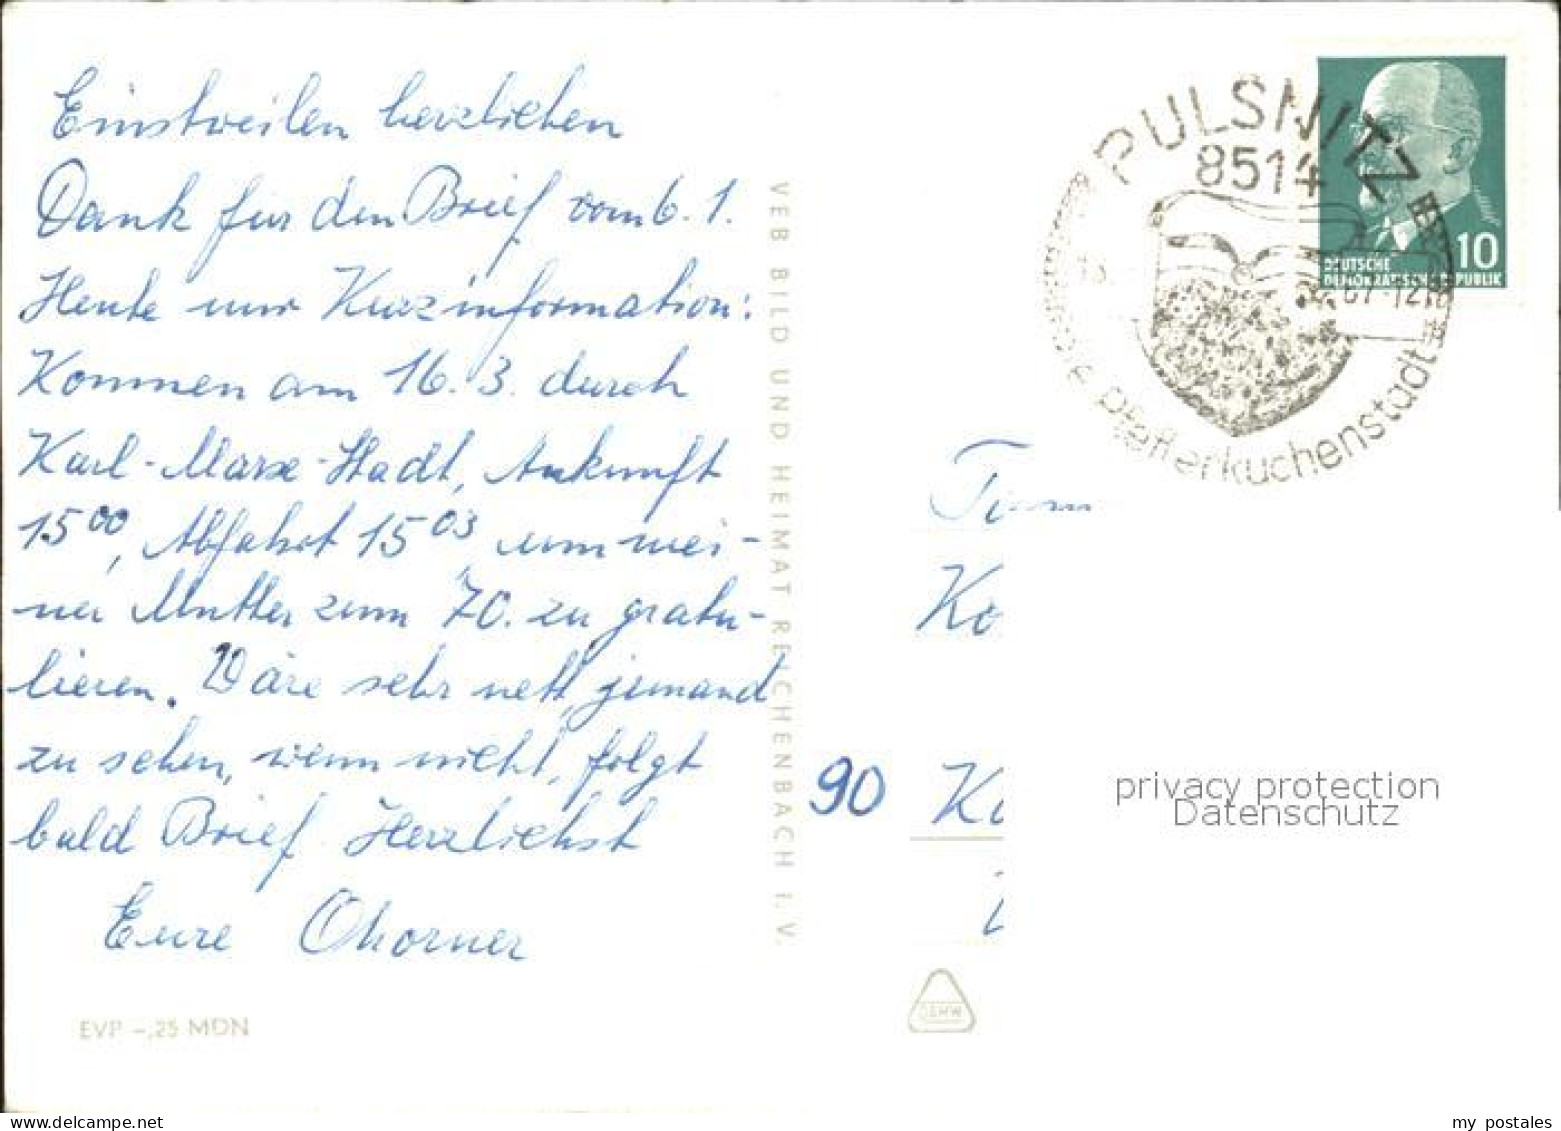 Einstweilen herzlichen
Dank für den Brief vom 6. 1.
Heute nur Kurzinformation:
Kommen am 16. 3. durch
Karl-Marx-Stadt, Ankunft
15⁰⁰, Abfahrt 15⁰³ um mei-
ner Mutter zum 70. zu gratu-
lieren. Wäre sehr nett, jemand
zu sehen, wenn nicht, folgt
bald Brief. Herzlichst
Eure Ohorner
EVP -,25 MDN
VEB BILD UND HEIMAT REICHENBACH I. V.
PULSNITZ
8514
die Pfefferkuchenstadt
10
DEUTSCHE
DEMOKRATISCHE REPUBLIK
90
privacy protection
Datenschutz
my postales